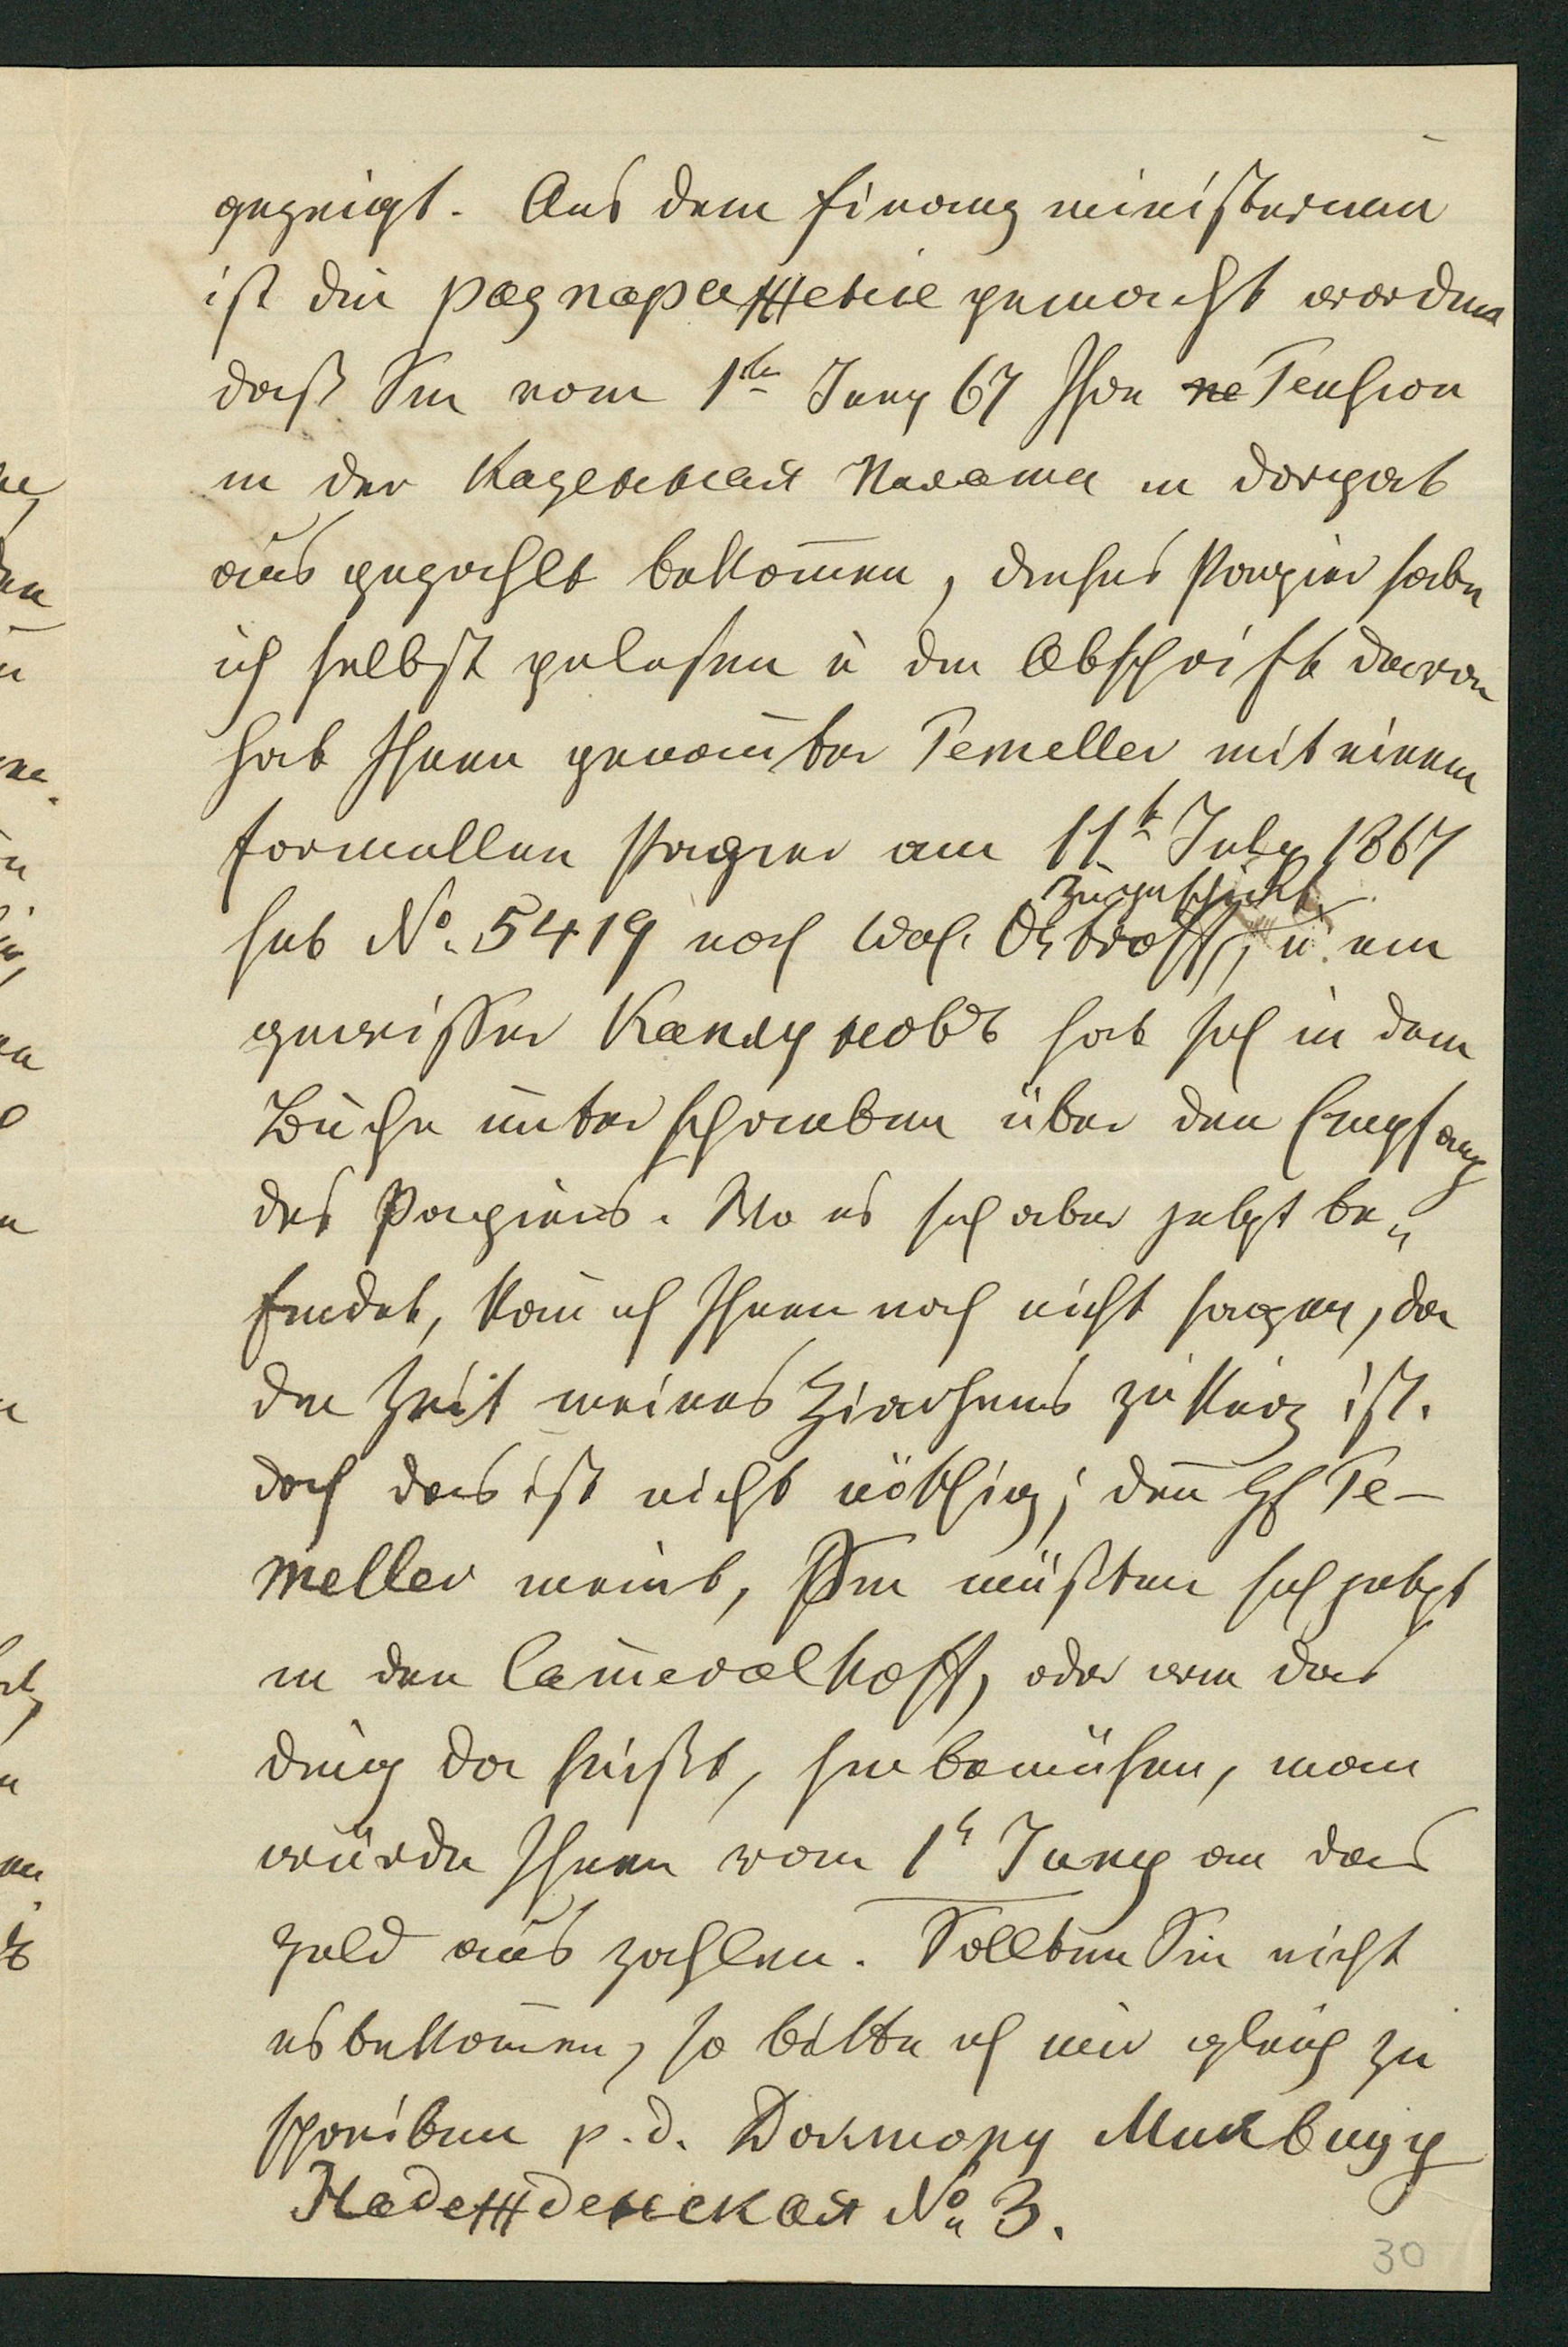 gezeigt. Aus dem Finanz ministerium
ist die распоряженіе gemacht worden
daß Sie vom 1ten Juny 67 Ihre ne Pension
in der Казенная Палата in Dorpat
ausgezahlt bekom̅en, dieses Papier habe
ich selbst gelesen u die Abschrift davon
hat Ihnen genan̅ter Pemeller mit einem
formellen Papier am 11t July 1867
zugeschickt
sub No. 5419 nach Was. Ostroff, u ein
gewisser Кандуновъ hat sich in dem
Buche unterschrieben über den Empfang
des Papiers. Wo es sich aber jetzt be„
findet, kan̅ ich Ihnen noch nicht sagen, da
die Zeit meines Hierseins zu kurz ist.
doch das ist nicht nöthig; den̅ H Pe-
meller meint, Sie müßten sich jetzt
in den Cam̅eralhoff, oder wie das
Ding da heißt, hinbemühen, man
würde Ihnen vom 1t Juny an das
Geld auszahlen. Sollten Sie nicht
es bekom̅en, so bitte ich mir gleich zu
schreiben p. d. Доктору
Надежденская No 3.
30